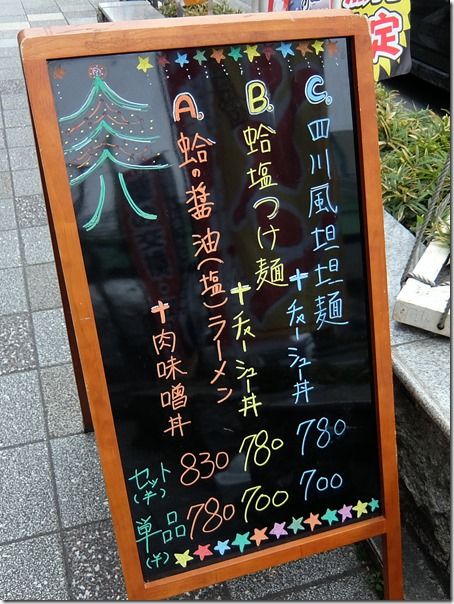 A. 蛤の醤油(塩)ラーメン
+肉味噌丼
B. 蛤塩つけ麺
+チャーシュー丼
C. 四川風坦坦麺
+チャーシュー丼
セット(¥) 830 780 780
単品(¥) 780 700 700
定